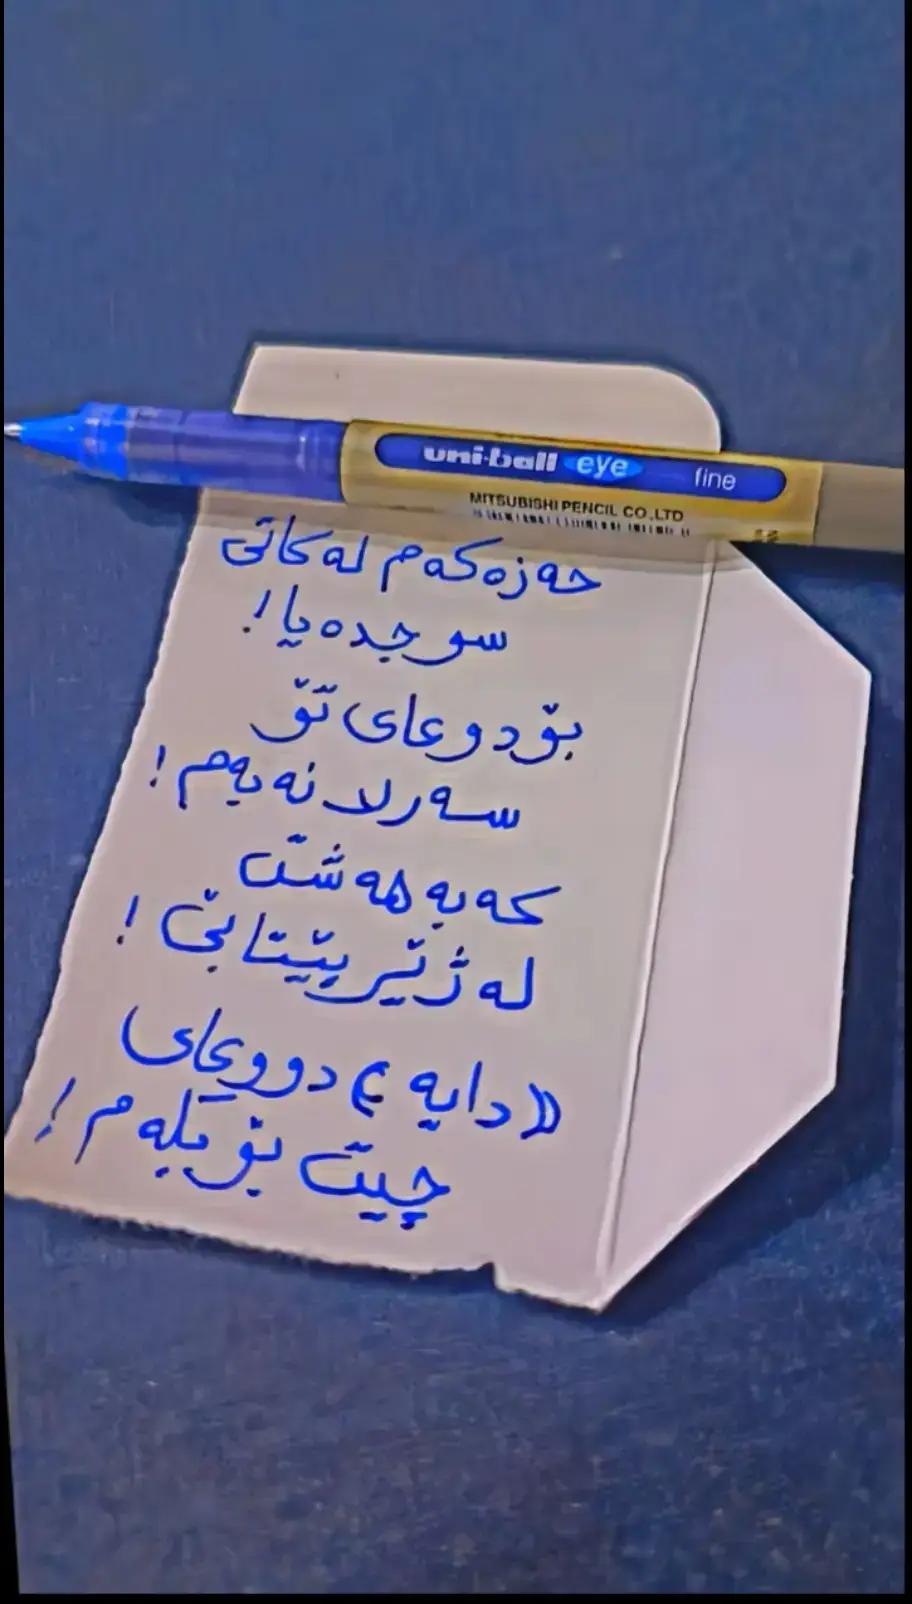 uni-ball eye fine
MITSUBISHI PENCIL CO.,LTD
حەزەکەم لەکاتی
سوجدەیا!
بۆ دوعای تۆ
سەرلا نەبەم!
کەبەهەشت
لەژێرپێیتابێ!
((دایە)) دووعای
چیت بۆ بکەم!